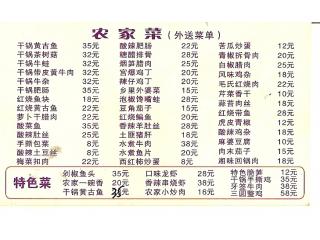 农家菜(外送菜单)
干锅黄古鱼 35元 酸辣肥肠 22元 苦瓜炒蛋 12元
干锅茶树菇 32元 糖醋排骨 28元 青椒拆骨肉 20元
干锅牛蛙 32元 烟笋腊肉 25元 白椒腊肉 25元
干锅带皮黄牛肉 32元 宫爆鸡丁 20元 风味鸡杂 18元
干锅鸡杂 25元 小炒鸡丁 20元 毛氏红烧肉 22元
干锅肥肠 35元 乡里外婆菜 15元 芹菜香干 10元
红烧鱼块 18元 泡椒馋嘴蛙 28元 蒜苔肉丝 18元
红烧黄古鱼 22元 豆角茄子 15元 红烧带鱼 28元
萝卜干腊肉 20元 红烧鳊鱼 20元 虎皮青椒 12元
酸菜鱼 35元 香辣羊肚丝 28元 酸辣鸡杂 18元
酸辣肚丝 25元 土匪猪肝 18元 麻婆豆腐 10元
手撕包菜 8元 水煮牛肉 30元 肉末茄子 15元
酸辣土豆丝 8元 水煮肉片 20元 湘味回锅肉 18元
梅菜扣肉 22元 西红柿炒蛋 8元
特色菜 剁椒鱼头 35元 口味龙虾 28元 特色脆笋 12元
农家一碗香 20元 香辣串烧虾 38元 干锅手撕鸡 35元
干锅黄古鱼 35元 农家小炒肉 16元 牙签牛肉 38元
三圆整鸡 58元